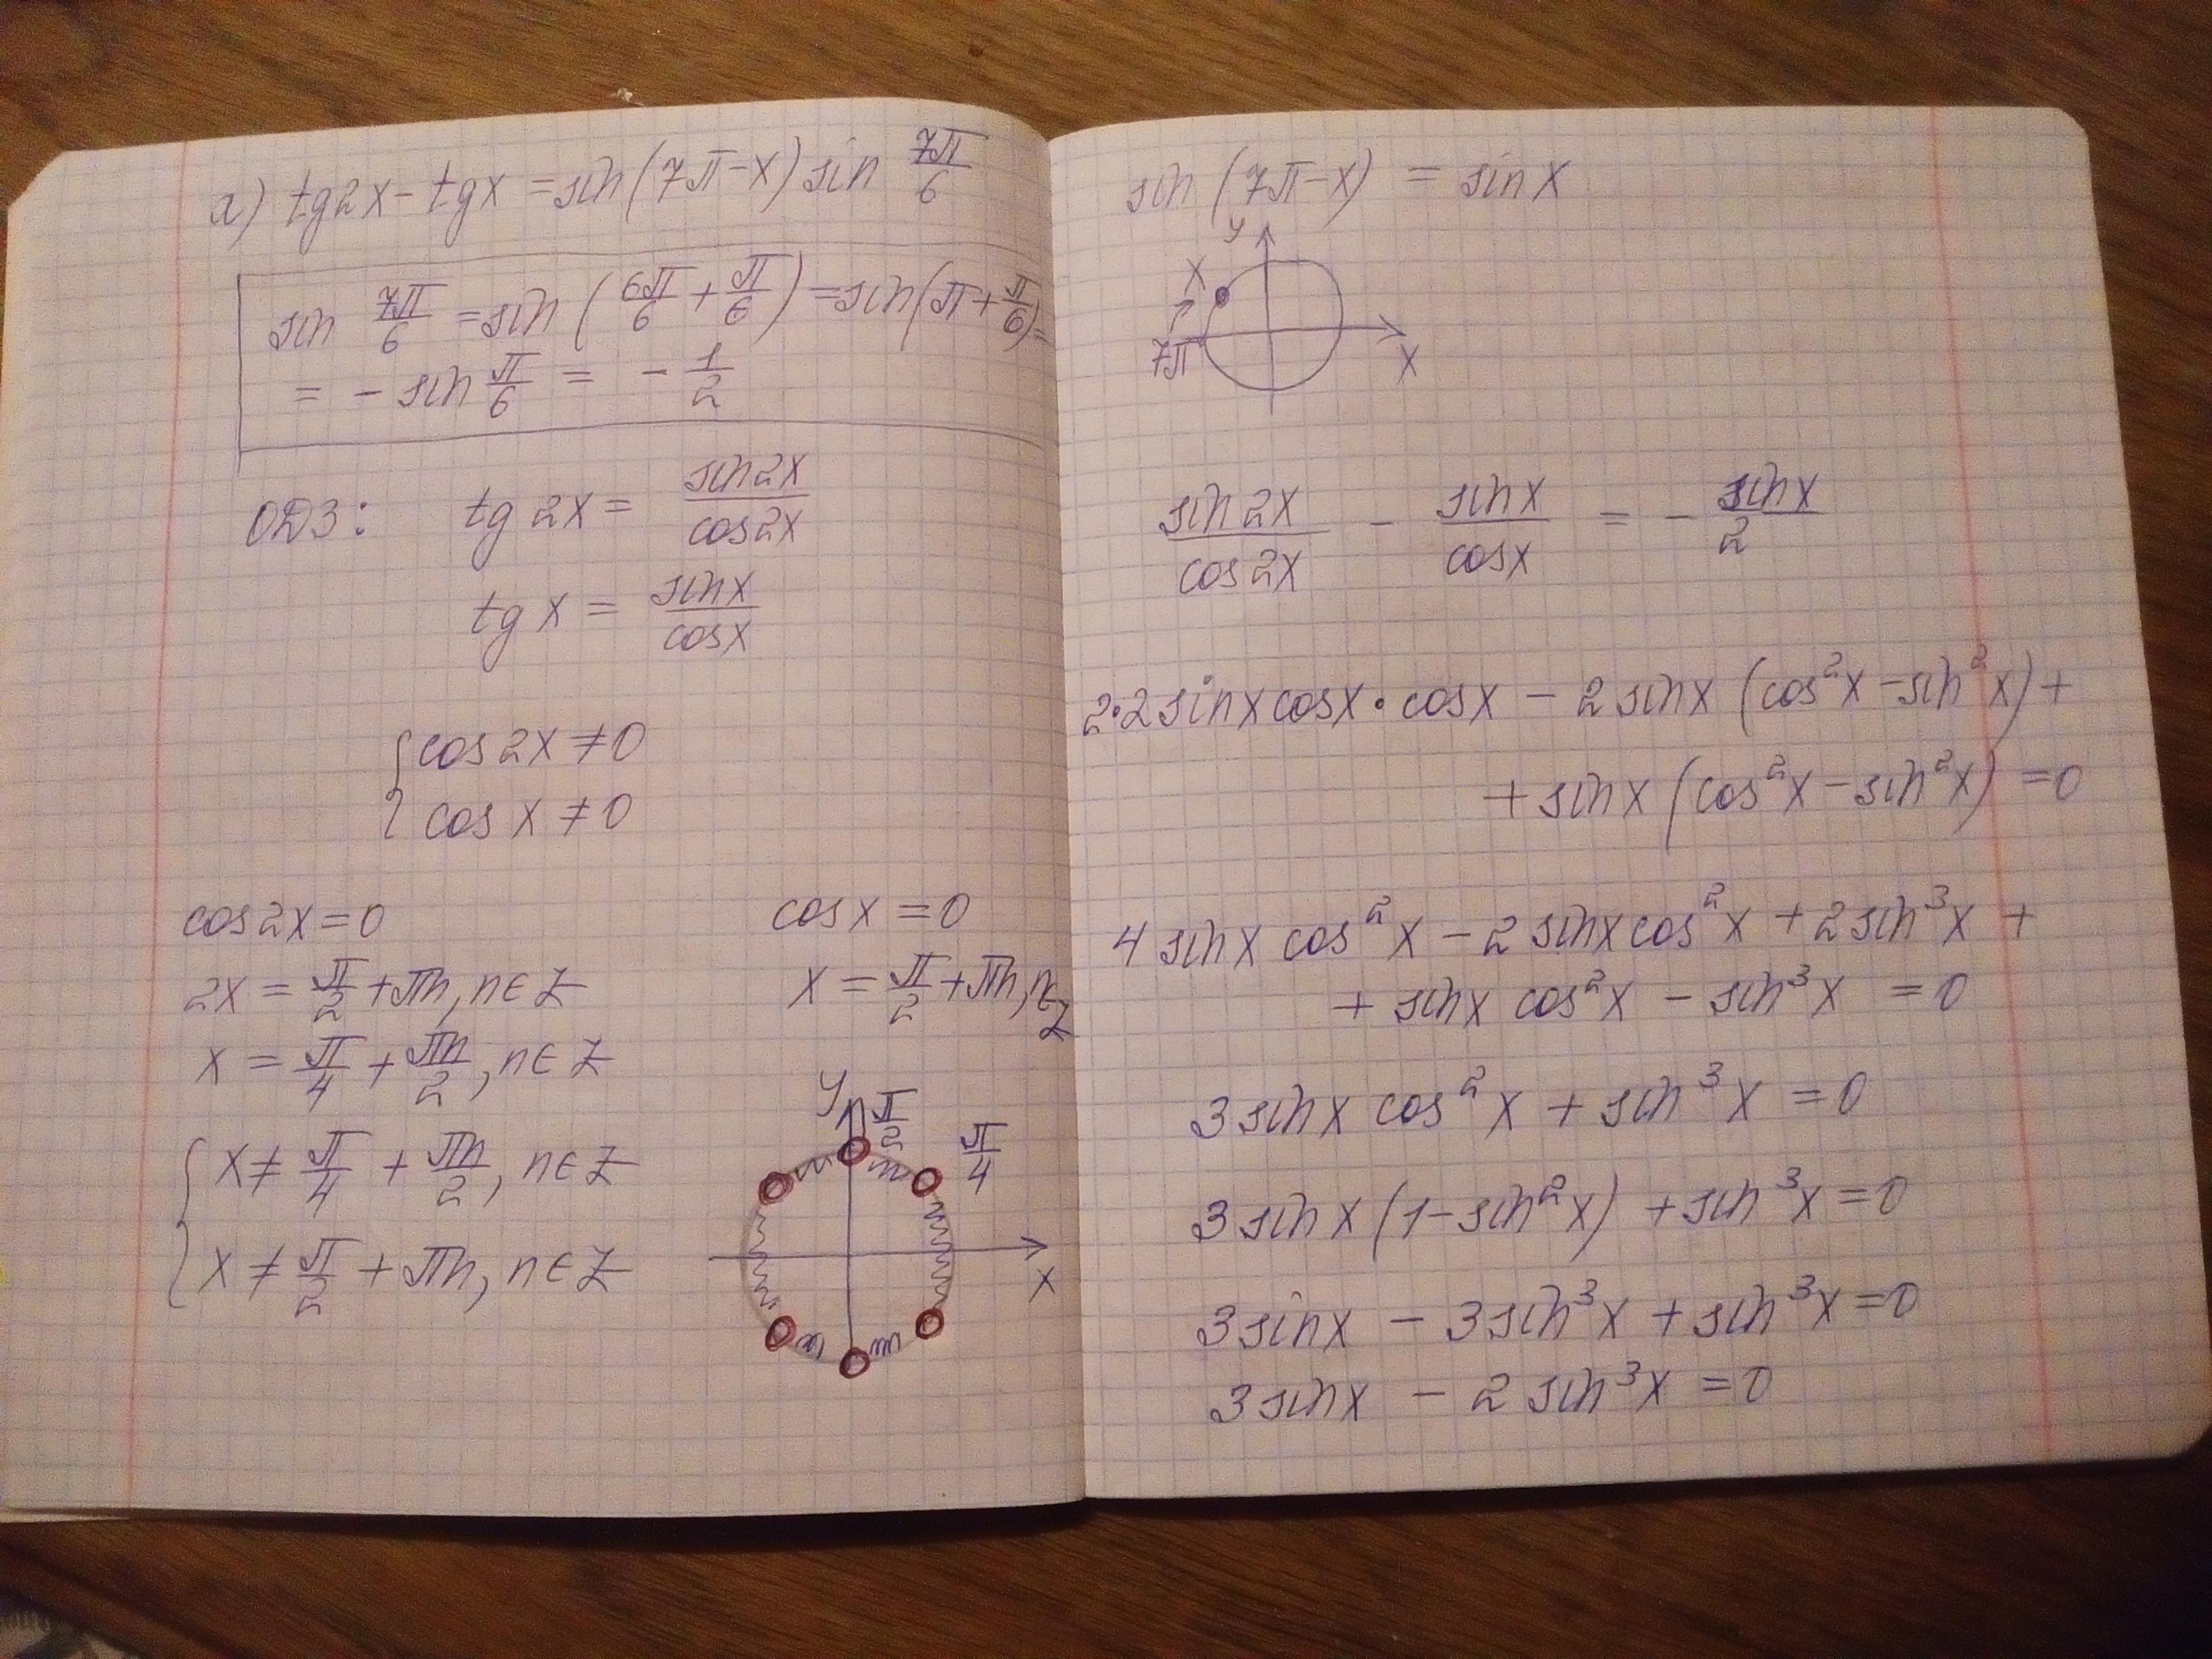 а) tg2x - tgx = sin(7π-x) sin 7π/6
sin 7π/6 = sin (6π/6 + π/6) = sin(π + π/6) =
= - sin π/6 = - 1/2
ОДЗ: tg 2x = sin2x/cos2x
tg x = sinx/cosx
{ cos2x ≠ 0
cos x ≠ 0
cos2x = 0
2x = π/2 + πn, n ∈ Z
x = π/4 + πn/2, n ∈ Z
{ x ≠ π/4 + πn/2, n ∈ Z
x ≠ π/2 + πn, n ∈ Z
cosx = 0
x = π/2 + πn, n ∈ Z
y π/2
π/4
x
sin (7π-x) = sinx
y
x
7π
x
sin2x/cos2x - sinx/cosx = - sinx/2
2·2sinxcosx·cosx - 2sinx (cos²x - sin²x) +
+ sinx (cos²x - sin²x) = 0
4 sinx cos²x - 2sinxcos²x + 2sin³x +
+ sinx cos²x - sin³x = 0
3sinx cos²x + sin³x = 0
3sinx (1-sin²x) + sin³x = 0
3sinx - 3sin³x + sin³x = 0
3sinx - 2sin³x = 0